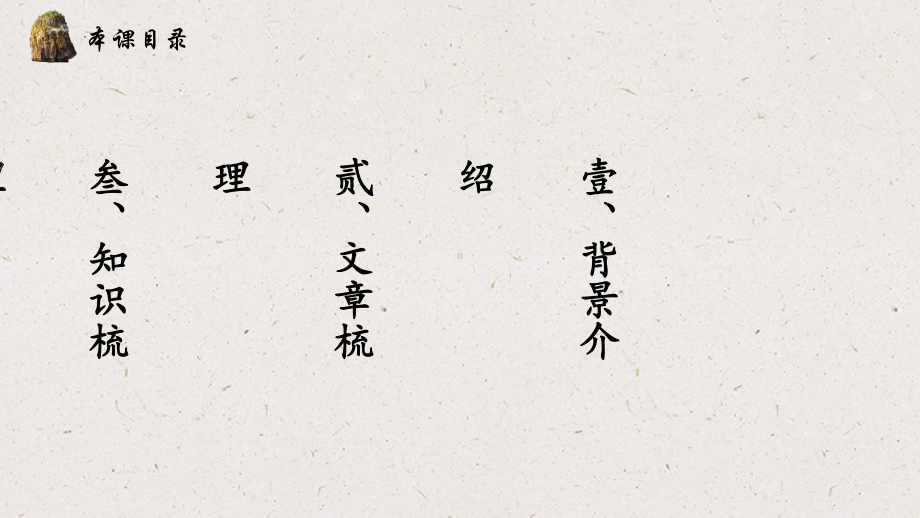 本课目录
壹、背景介
绍
贰、文章梳
理
叁、知识梳